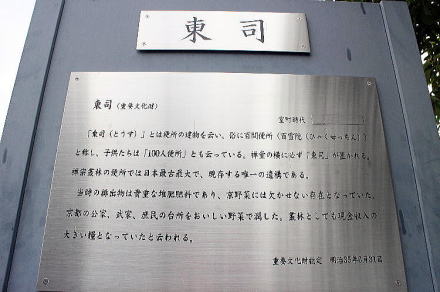 東司
東司（重要文化財）
室町時代
「東司（とうす）」とは便所の建物を云い、俗に百間便所（百雪隠（ひゃくせっちん））
と称し、子供たちは「100人便所」とも云っている。禅堂の横に必ず「東司」が置かれる。
禅宗叢林の便所では日本最古最大で、現存する唯一の遺構である。
当時の排出物は貴重な堆肥肥料であり、京野菜には欠かせない存在となっていた。
京都の公家、武家、庶民の台所をおいしい野菜で潤した。叢林としても現金収入の
大きい糧となっていたと云われる。
重要文化財指定　明治35年7月31日